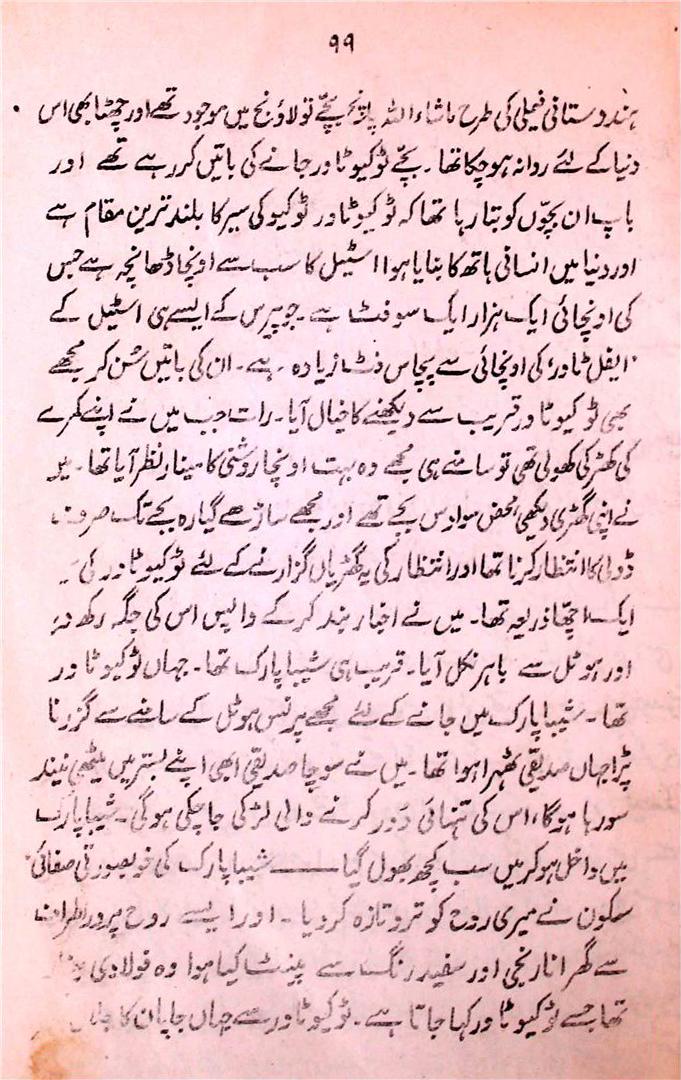 ۹۹
ہندوستانی فیملی کی طرح ماشاء اللہ پانچ بچّے تو لاؤنج میں موجود تھے اور چھٹا بھی اس
دنیا کے لئے روانہ ہو چکا تھا۔ بچّے ٹوکیو ٹاور جانے کی باتیں کر رہے تھے اور
باپ ان بچّوں کو بتا رہا تھا کہ ٹوکیو ٹاور ٹوکیو کی سیر کا بلند ترین مقام ہے
اور دنیا میں انسانی ہاتھ کا بنایا ہوا اسٹیل کا سب سے اونچا ڈھانچہ ہے جس
کی اونچائی ایک ہزار ایک سو فٹ ہے۔ جو پیرس کے ایسے ہی اسٹیل کے
'ایفل ٹاور' کی اونچائی سے پچاس فٹ زیادہ ہے۔ ان کی باتیں سُن کر مجھے
بھی ٹوکیو ٹاور قریب سے دیکھنے کا خیال آیا۔ رات جب میں نے اپنے کمرے
کی کھڑکی کھولی تھی تو سامنے ہی مجھے وہ بہت اونچا روشنی کا مینار نظر آیا تھا۔
نے اپنی گھڑی دیکھی، محض سوا دس بجے تھے اور مجھے ساڑھے گیارہ بجے تک صرف
ڈولی کا انتظار کرنا تھا اور انتظار کی یہ گھڑیاں گزارنے کے لئے ٹوکیو ٹاور کی
ایک اچھّا ذریعہ تھا۔ میں نے اخبار بند کر کے واپس اس کی جگہ رکھ دیا
اور ہوٹل سے باہر نکل آیا۔ قریب ہی شیبا پارک تھا۔ جہاں ٹوکیو ٹاور
تھا۔ شیبا پارک میں جانے کے لئے مجھے پرنس ہوٹل کے سامنے سے گزرنا
پڑا جہاں صدیقی ٹھہرا ہوا تھا۔ میں نے سوچا صدیقی ابھی اپنے بستر میں میٹھی نیند
سو رہا ہو گا، اس کی تنہائی دُور کرنے والی لڑکی جا چکی ہو گی۔ شیبا پارک
میں داخل ہو کر میں سب کچھ بھول گیا ــــــ شیبا پارک کی خوبصورتی صفائی
سکون نے میری روح کو تر و تازہ کر دیا۔ اور ایسے روح پرور اطراف
سے گھرا نارنجی اور سفید رنگ سے پینٹ کیا ہوا وہ فولادی
تھا جسے ٹوکیو ٹاور کہا جاتا ہے۔ ٹوکیو ٹاور سے جہاں جاپان کا